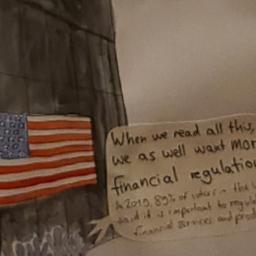 When we read all this,
we as well want more
financial regulation
In 2019, 89% of voters in the
said it is important to regul
financial services and prod